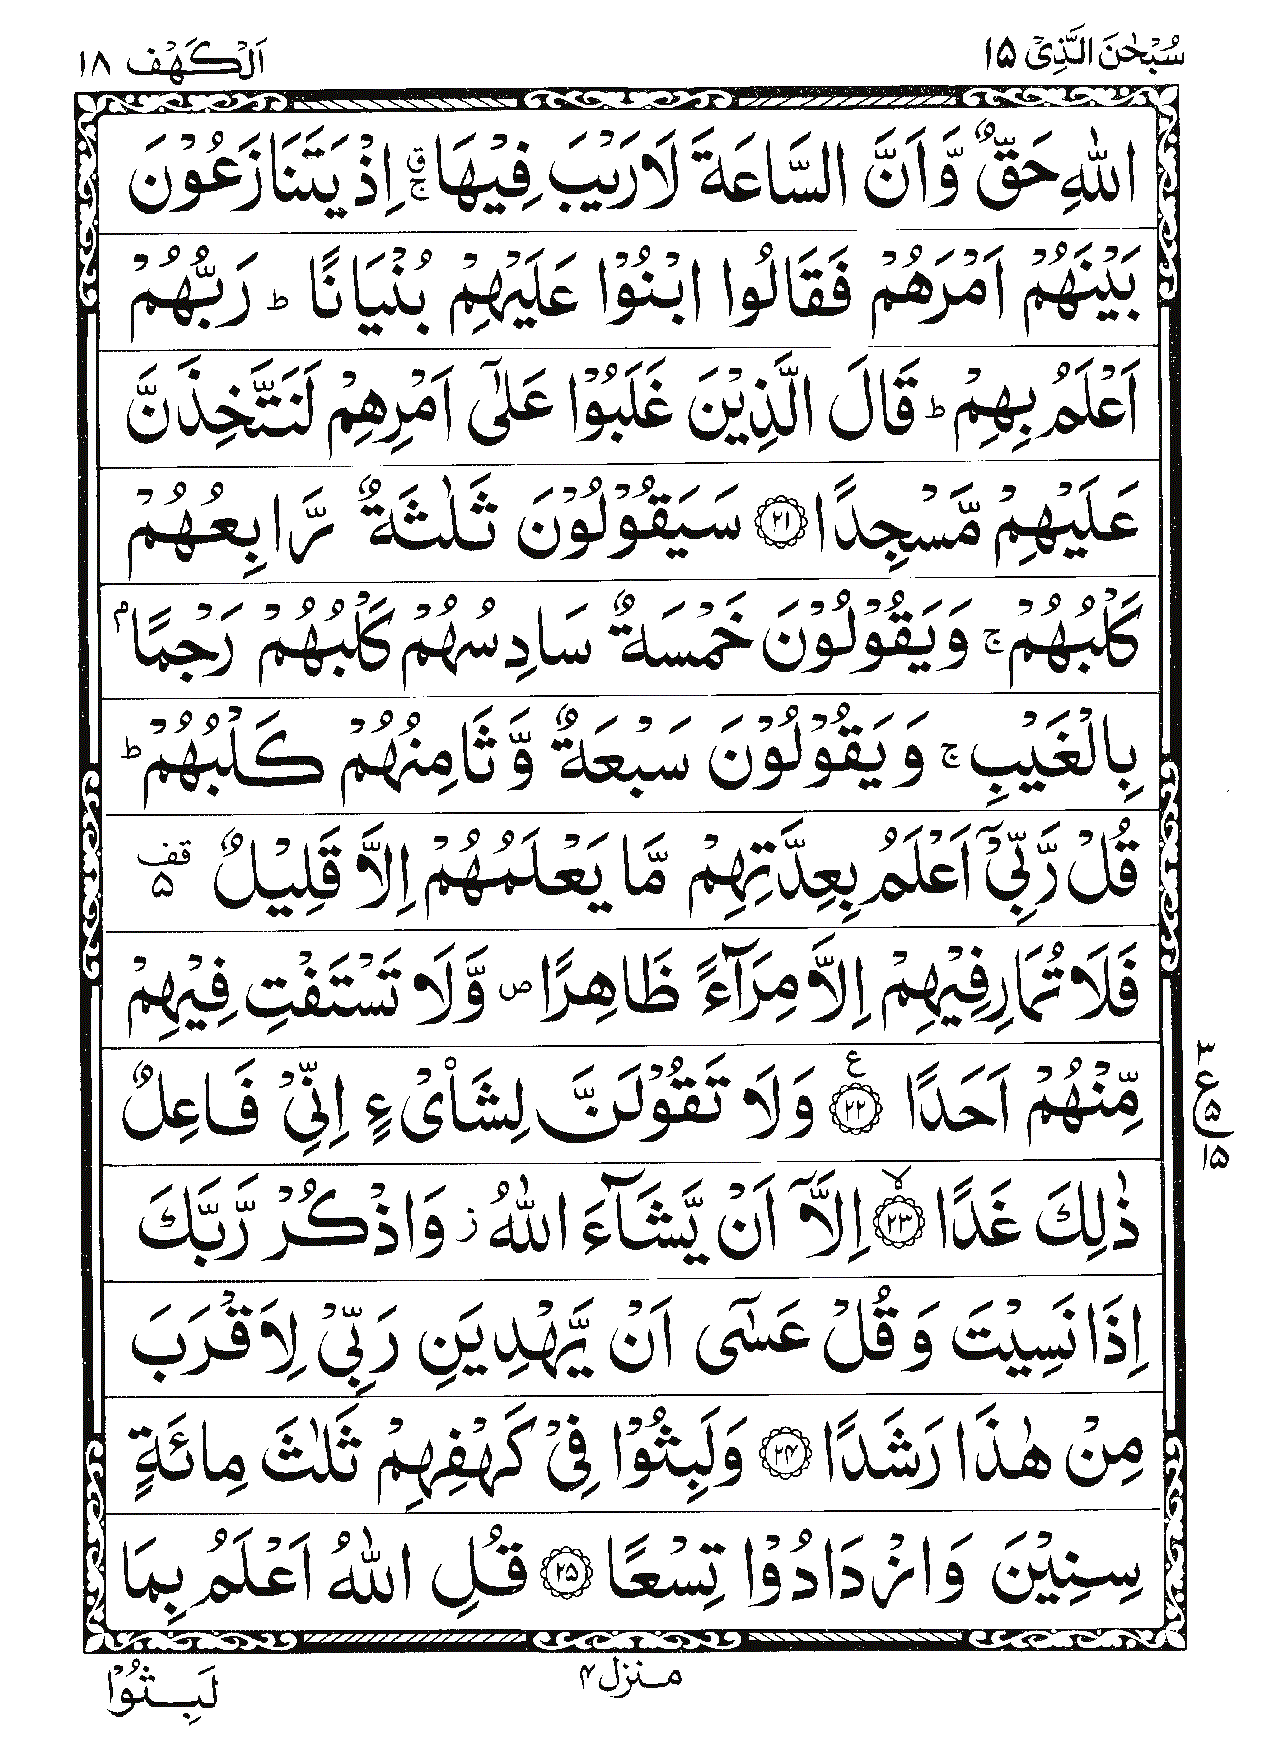 سُبْحٰنَ الَّذِیْۤ ۱۵
اَلْكَهْف ۱۸
اللّٰهِ حَقٌّ وَّ اَنَّ السَّاعَةَ لَا رَیْبَ فِیْهَا ۚۗ اِذْ یَتَنَازَعُوْنَ
بَیْنَهُمْ اَمْرَهُمْ فَقَالُوا ابْنُوْا عَلَیْهِمْ بُنْیَانًا ؕ رَبُّهُمْ
اَعْلَمُ بِهِمْ ؕ قَالَ الَّذِیْنَ غَلَبُوْا عَلٰۤى اَمْرِهِمْ لَنَتَّخِذَنَّ
عَلَیْهِمْ مَّسْجِدًا ﴿۲۱﴾ سَیَقُوْلُوْنَ ثَلٰثَةٌ رَّابِعُهُمْ
كَلْبُهُمْ ۚ وَ یَقُوْلُوْنَ خَمْسَةٌ سَادِسُهُمْ كَلْبُهُمْ رَجْمًۢا
بِالْغَیْبِ ۚ وَ یَقُوْلُوْنَ سَبْعَةٌ وَّ ثَامِنُهُمْ كَلْبُهُمْ ؕ
قُلْ رَّبِّیْۤ اَعْلَمُ بِعِدَّتِهِمْ مَّا یَعْلَمُهُمْ اِلَّا قَلِیْلٌ قف ۵
فَلَا تُمَارِ فِیْهِمْ اِلَّا مِرَآءً ظَاهِرًا ص وَّ لَا تَسْتَفْتِ فِیْهِمْ
مِّنْهُمْ اَحَدًا ﴿۲۲﴾ ع وَ لَا تَقُوْلَنَّ لِشَایْءٍ اِنِّیْ فَاعِلٌ
۳ ع ۵ ۱۵
ذٰلِكَ غَدًا ﴿۲۳﴾ لا اِلَّاۤ اَنْ یَّشَآءَ اللّٰهُ ز وَ اذْكُرْ رَّبَّكَ
اِذَا نَسِیْتَ وَ قُلْ عَسٰۤى اَنْ یَّهْدِیَنِ رَبِّیْ لِاَقْرَبَ
مِنْ هٰذَا رَشَدًا ﴿۲۴﴾ وَ لَبِثُوْا فِیْ كَهْفِهِمْ ثَلٰثَ مِائَةٍ
سِنِیْنَ وَ ازْدَادُوْا تِسْعًا ﴿۲۵﴾ قُلِ اللّٰهُ اَعْلَمُ بِمَا
منزل ۴
لَبِثُوْا